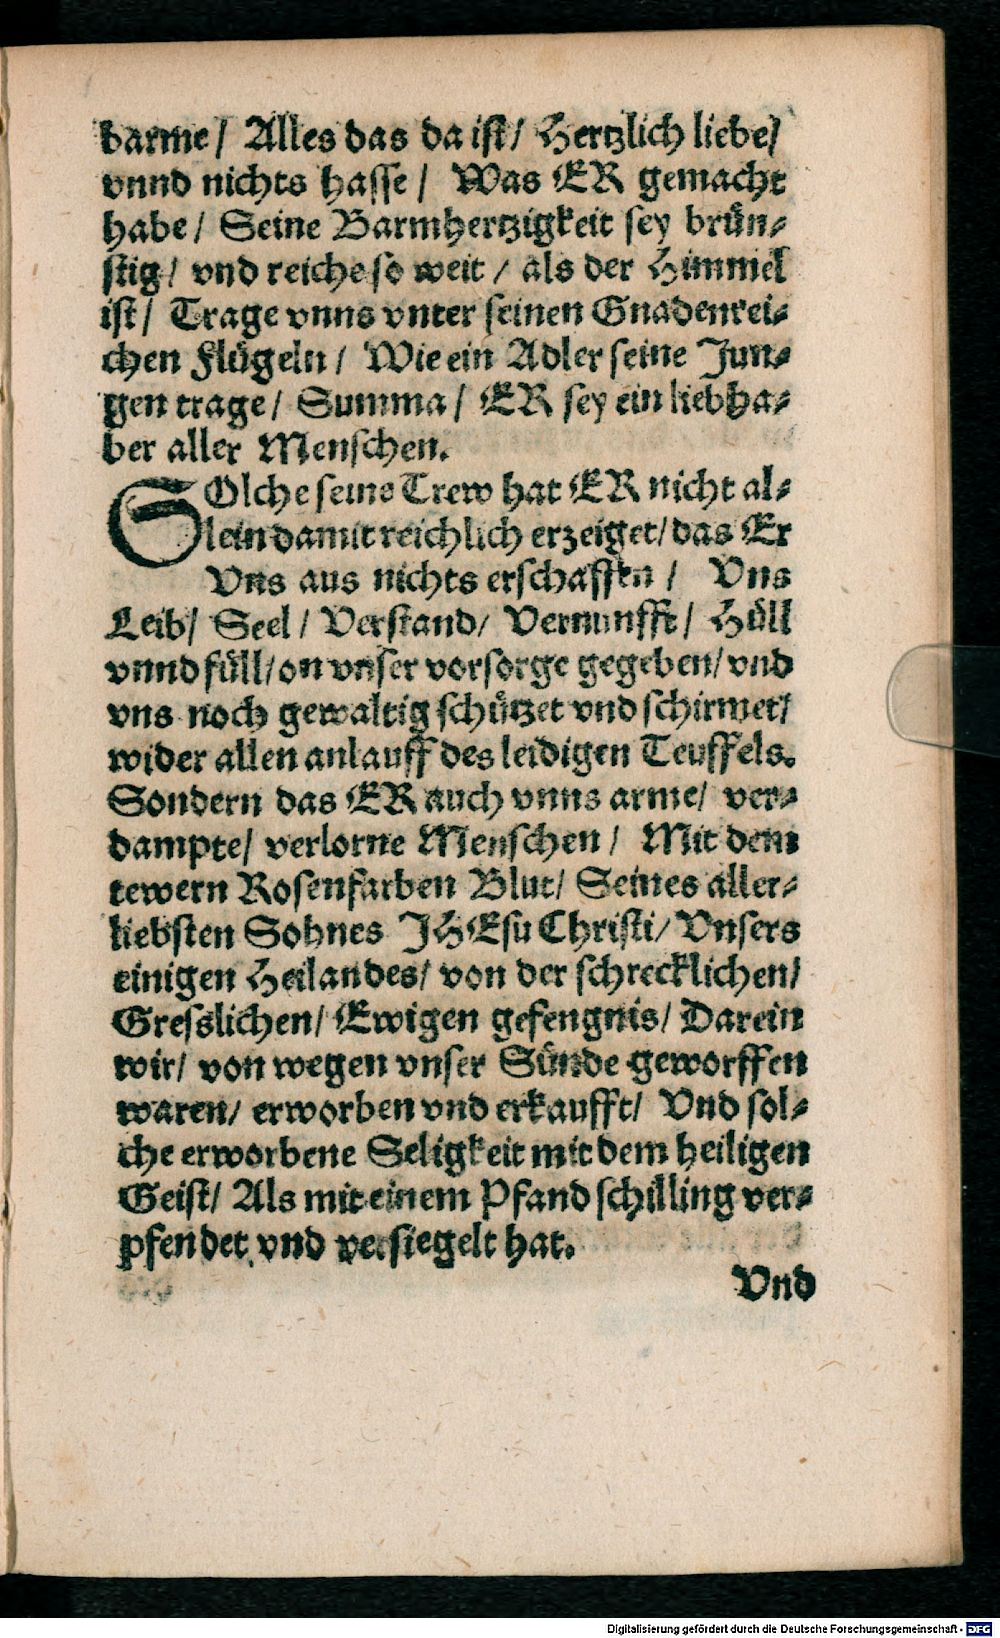 barme/ Alles das da ist/ Hertzlich liebe/
vnnd nichts hasse/ Was ER gemacht
habe/ Seine Barmhertzigkeit sey brün⸗
stig/ vnd reiche so weit/ als der Himmel
ist/ Trage vnns vnter seinen Gnadenrei⸗
chen Flügeln/ Wie ein Adler seine Jun⸗
gen trage/ Summa/ ER sey ein liebha⸗
ber aller Menschen.
SOlche seine Trew hat ER nicht al⸗
lein damit reichlich erzeiget/ das Er
Vns aus nichts erschaffen/ Vns
Leib/ Seel/ Verstand/ Vernunfft/ Hüll
vnnd füll/ on vnser vorsorge gegeben/ vnd
vns noch gewaltig schützet vnd schirmet/
wider allen anlauff des leidigen Teuffels.
Sondern das ER auch vnns arme/ ver⸗
dampte/ verlorne Menschen/ Mit dem
tewern Rosenfarben Blut/ Seines aller⸗
liebsten Sohnes JHEsu Christi/ Vnsers
einigen Heilandes/ von der schrecklichen/
Gresslichen/ Ewigen gefengnis/ Darein
wir/ von wegen vnser Sünde geworffen
waren/ erworben vnd erkaufft/ Vnd sol⸗
che erworbene Seligkeit mit dem heiligen
Geist/ Als mit einem Pfandschilling ver⸗
pfendet vnd versiegelt hat.
Vnd
Digitalisierung gefördert durch die Deutsche Forschungsgemeinschaft - DFG